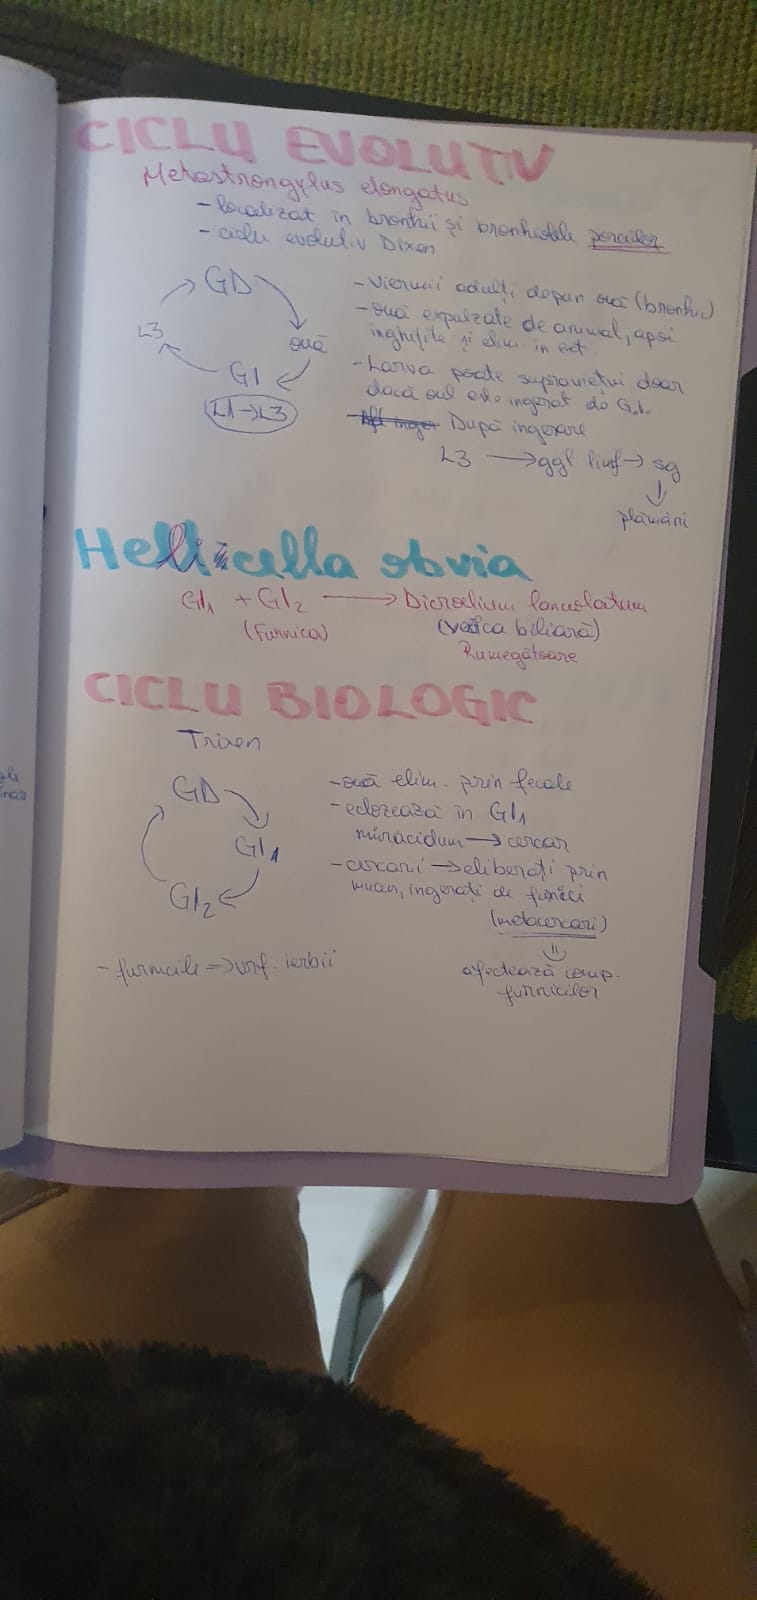 CICLU EVOLUTIV
Metastrongylus elongatus
- localizat în bronhii și bronhiolele porcilor
- ciclu evolutiv Dixen
GD
ouă
GI
(L1→L3)
L3
- Viermii adulți depun ouă (bronhii)
- ouă expulzate de animal, apoi
înghițite și elim. în ext.
- Larva poate supraviețui doar
dacă oul este ingerat de G.I.
După ingerare
L3 → ggl limf → sg
↓
plămâni
Hellicella obvia
GI1 + GI2 → Dicroelium lanceolatum
(Furnica) (vezica biliară)
Rumegătoare
CICLU BIOLOGIC
Trixen
GD
GI1
GI2
- ouă elim. prin fecale
- eclozează în GI1
miracidum → cercar
- cercari → eliberați prin
mucus, ingerați de furnici
(metacercari)
afectează comp.
furnicilor
- furnicile => vrf. ierbii